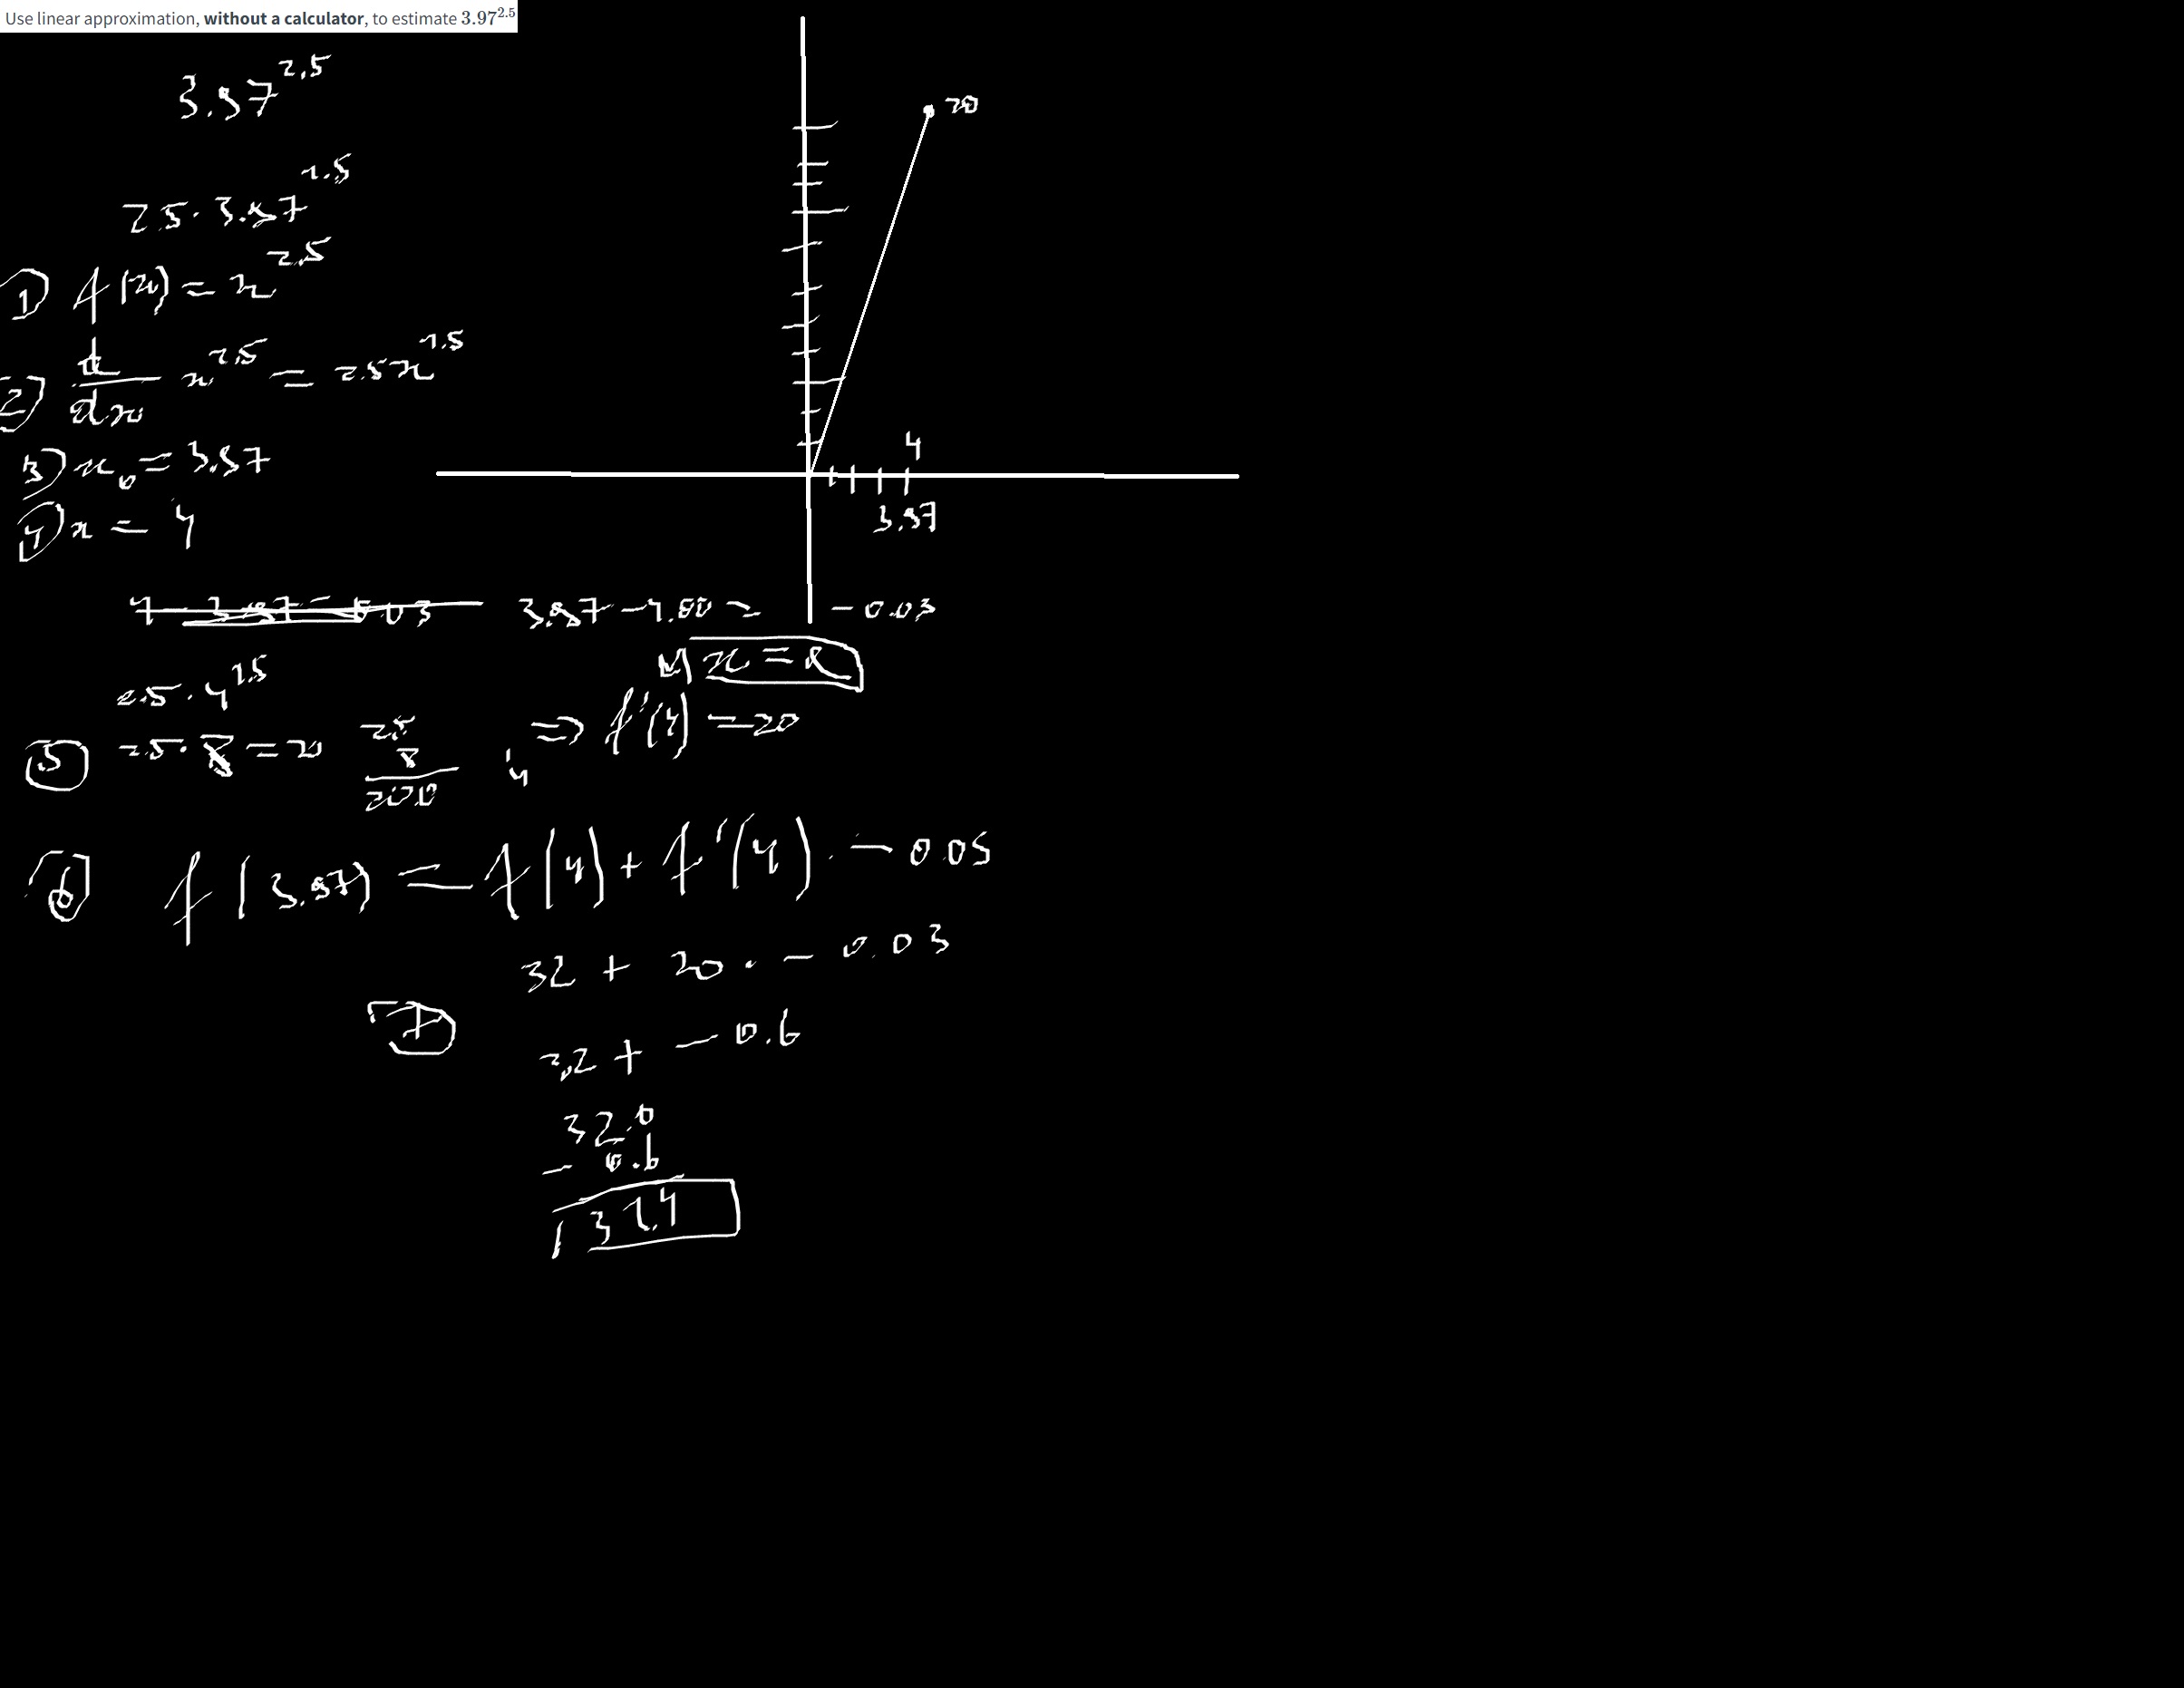 Use linear approximation, without a calculator, to estimate 3.97^2.5
3.97^2.5
2.5 · 3.97^1.5
① f(x) = x^2.5
② d/dx x^2.5 = 2.5x^1.5
③ x₀ = 3.97
④ x = 4
20
4
3.97
3.97 - 4.00 = -0.03
2.5 · 4^1.5
⑤ 2.5 · 8 = 20
2.5
8
20.0
=> f'(4) = 20
⑥ f(3.97) = f(4) + f'(4) · -0.03
32 + 20 · -0.03
⑦
32 + -0.6
32.0
- 0.6
31.4